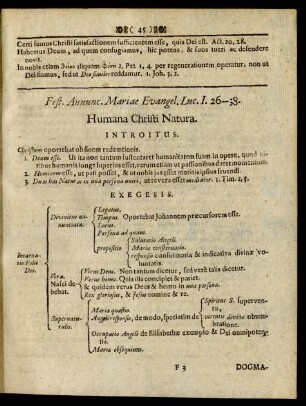 ( 45 )
Certi sumus Christi satisfactionem sufficientem esse, quia Dei est. Act. 20, 28.
Habemus Deum, ad quem confugiamus, hic potens, & suos tueri ac defendere
novit.
In nobis etiam aliquam 2. Pet 1, 4. per regenerationem operatur. non ut
Dei simus, sed ut Deo similes reddamur. 1. Joh. 3, 2.
Fest. Annunc. Mariae Evangel, Luc. I. 26-38.
Humana Christi Natura.
INTROITUS.
Christum oportebat ob finem redentionis.
1. Deum esse. Ut ita non tantum sustentaret humanitatem suam in opere, quod
viribus humanis longe superius esset, verum etiam ut passionibus daret momentum.
2. Hominem esse, ut pati posset, & ut nobis jus esset meritis ipsius fruendi.
3. Duas has Naturas in una persona uniri, ut vere esset mediator. 1 Tim. 2, 5.
EXEGESIS.
Incarnatio Filii
Dei.
Divinitus annunciata:
Legatus.
Tempus. Oportebat Johannem praecursorem esse.
Locus.
Persona ad quam.
propositio
Salutatio Angeli.
Mariae consternatio.
responsio consolatoria & indicativa divinae voluntatis.
Vera. Nasci debebat.
Verus Deus. Non tantum dicetur, sed vere talis dicetur.
Verus homo. Quia illa concipiet & pariet.
& quidem verus Deus & homo in una persona.
Rex gloriosus, & Jesus nomine & re.
Supernaturalis.
Mariae quaestio
Angeli responsio, de modo, speciatim de
Spiritus S. superventu,
virtutis divinae obumbratione.
Occupatio Angeli de Elisabethae exemplo & Dei omnipotentia.
Mariae obsequium.
F 3
DOGMA-